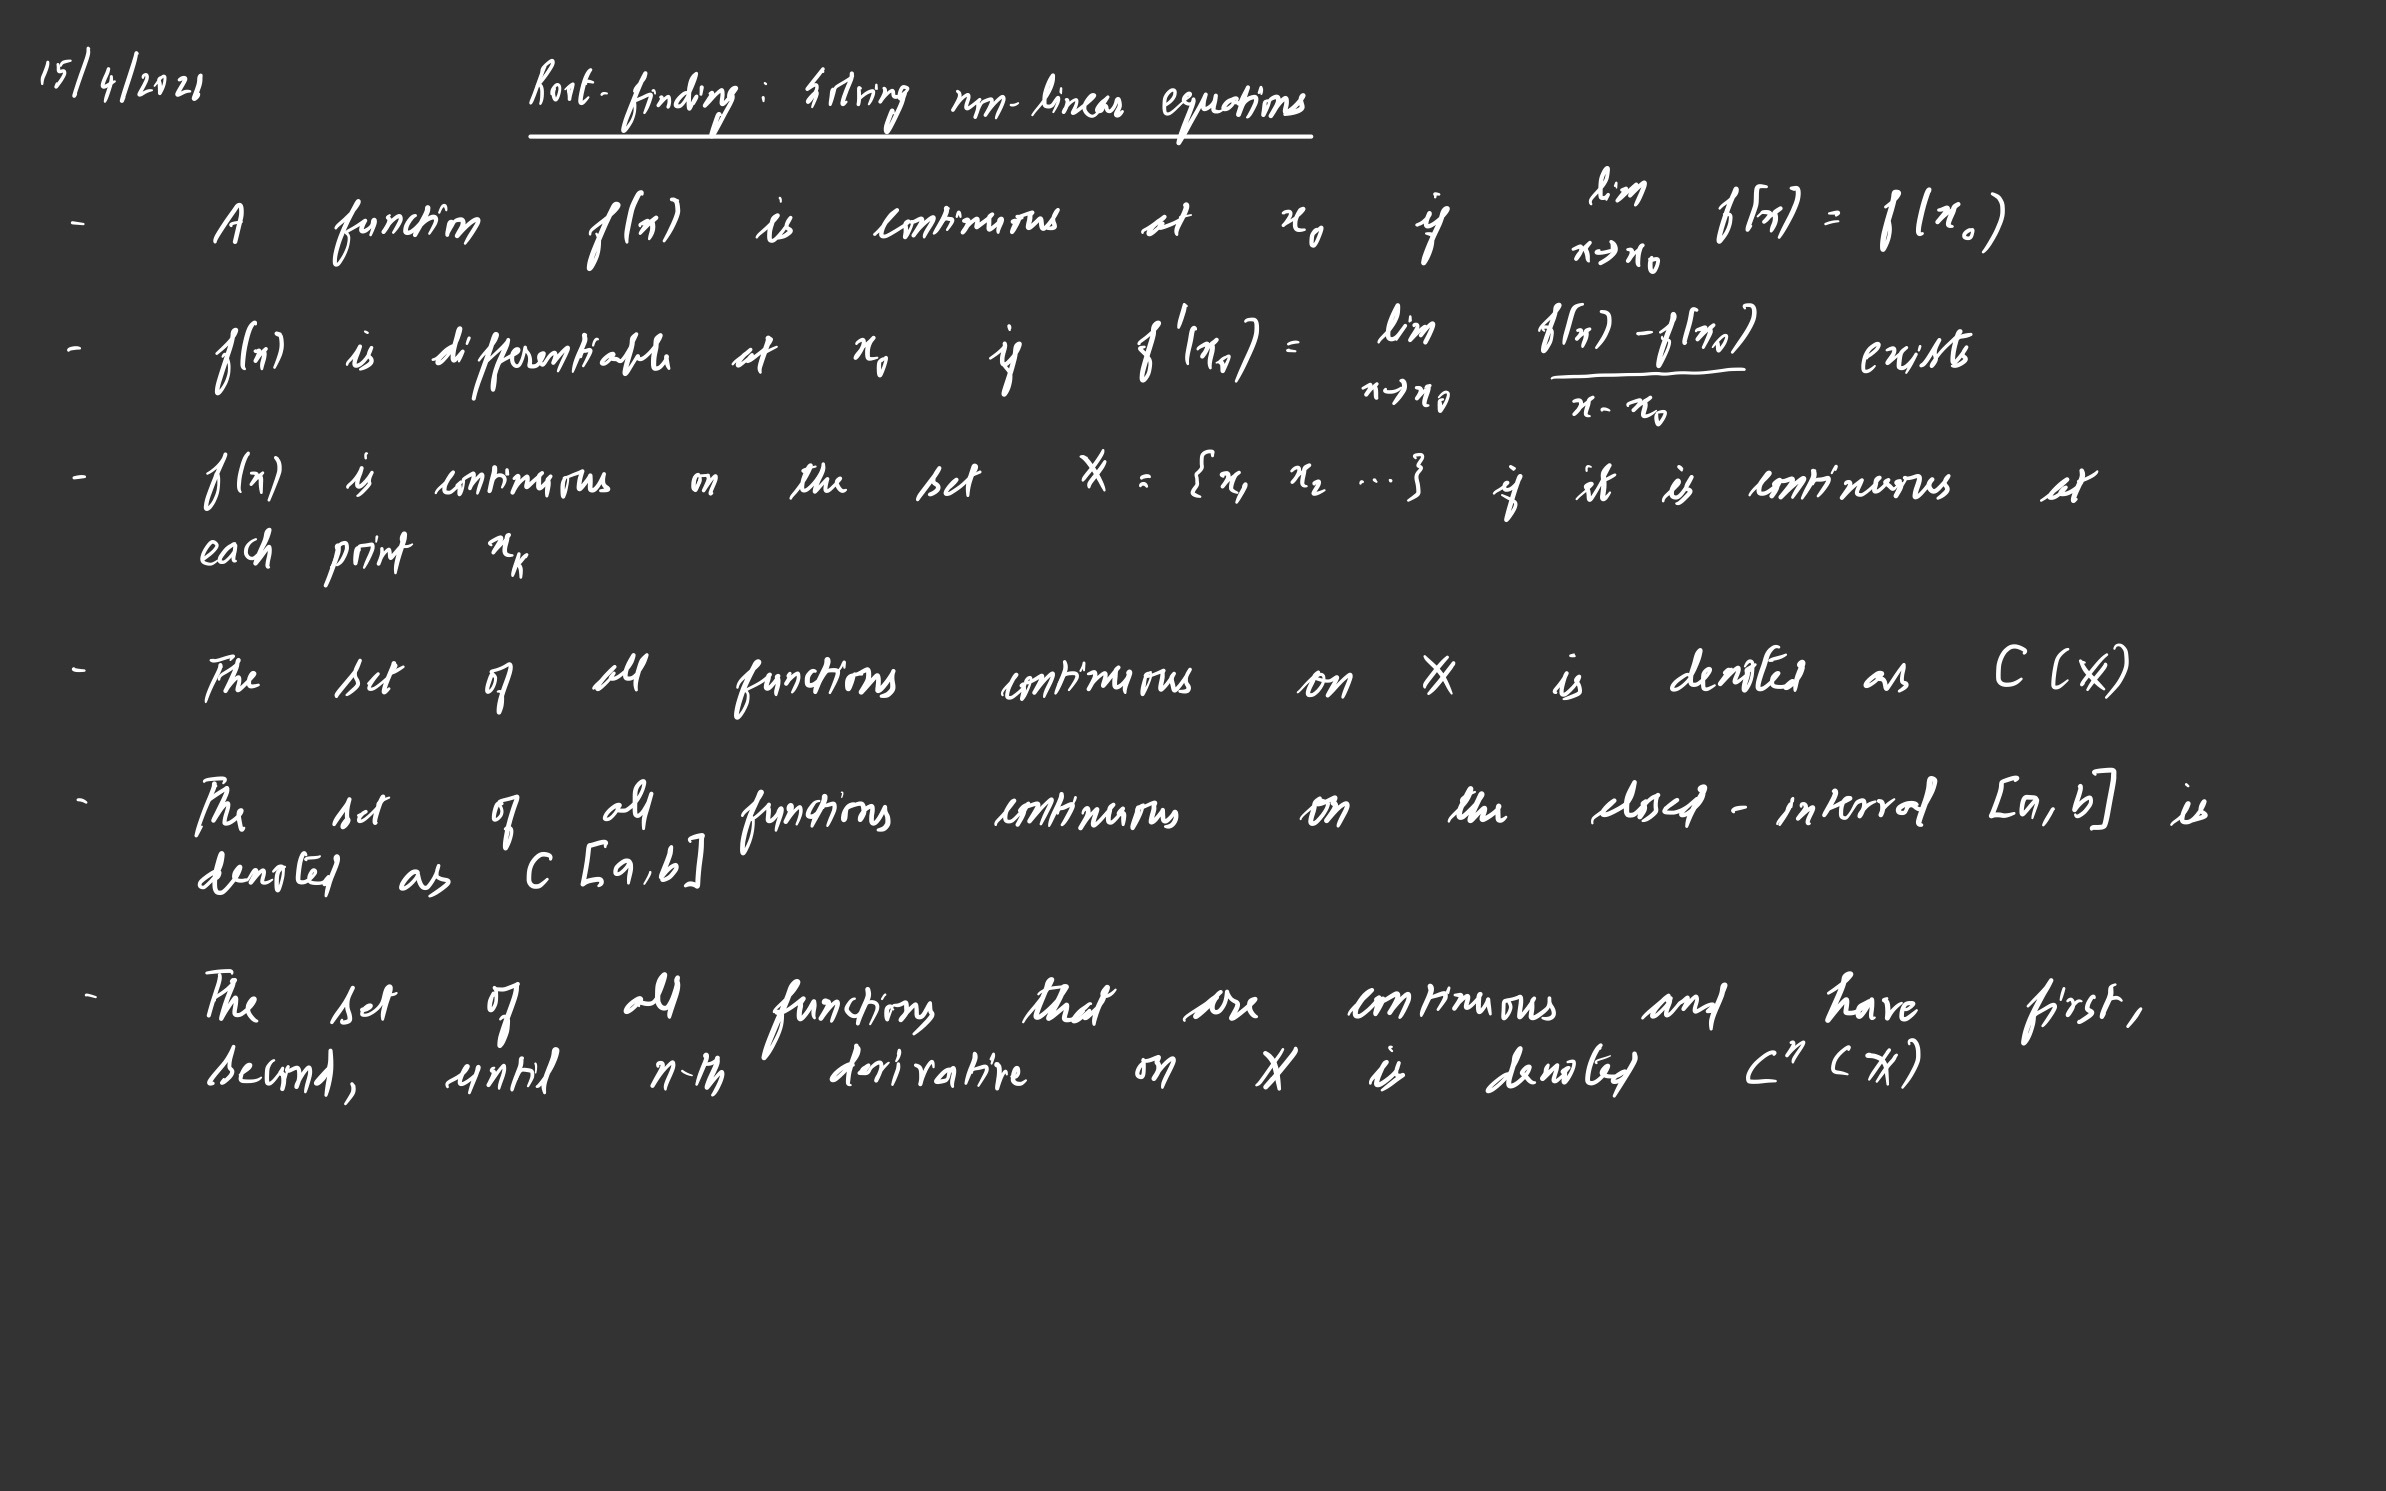 15/4/2021
Root-finding: Solving non-linear equations
- A function f(x) is continuous at x₀ if lim x→x₀ f(x) = f(x₀)
- f(x) is differentiable at x₀ if f'(x₀) = lim x→x₀ (f(x) - f(x₀))/(x - x₀) exists
- f(x) is continuous on the set 𝕏 = {x₁ x₂ ...} if it is continuous at
each point xₖ
- The set of all functions continuous on 𝕏 is denoted as C(𝕏)
- The set of all functions continuous on the closed-interval [a, b] is
denoted as C[a,b]
- The set of all functions that are continuous and have first,
second, until n-th derivative on 𝕏 is denoted Cⁿ(𝕏)